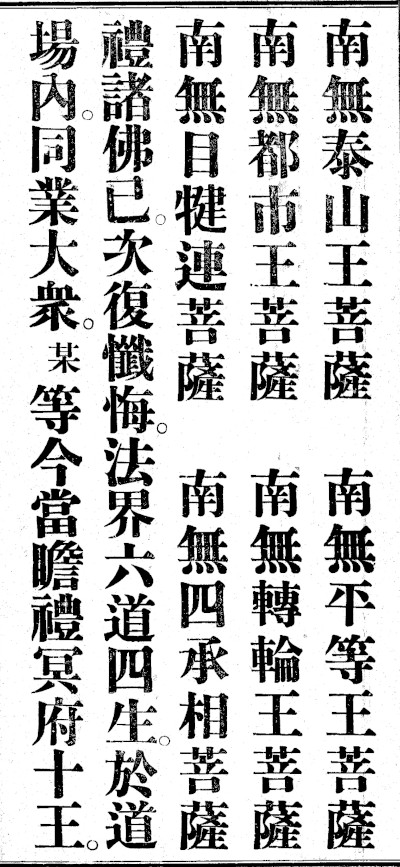 南無泰山王菩薩　南無平等王菩薩
南無都市王菩薩　南無轉輪王菩薩
南無目犍連菩薩　南無四承相菩薩
禮諸佛已。次復懺悔。法界六道四生。於道
場內。同業大衆。某等今當瞻禮冥府十王。